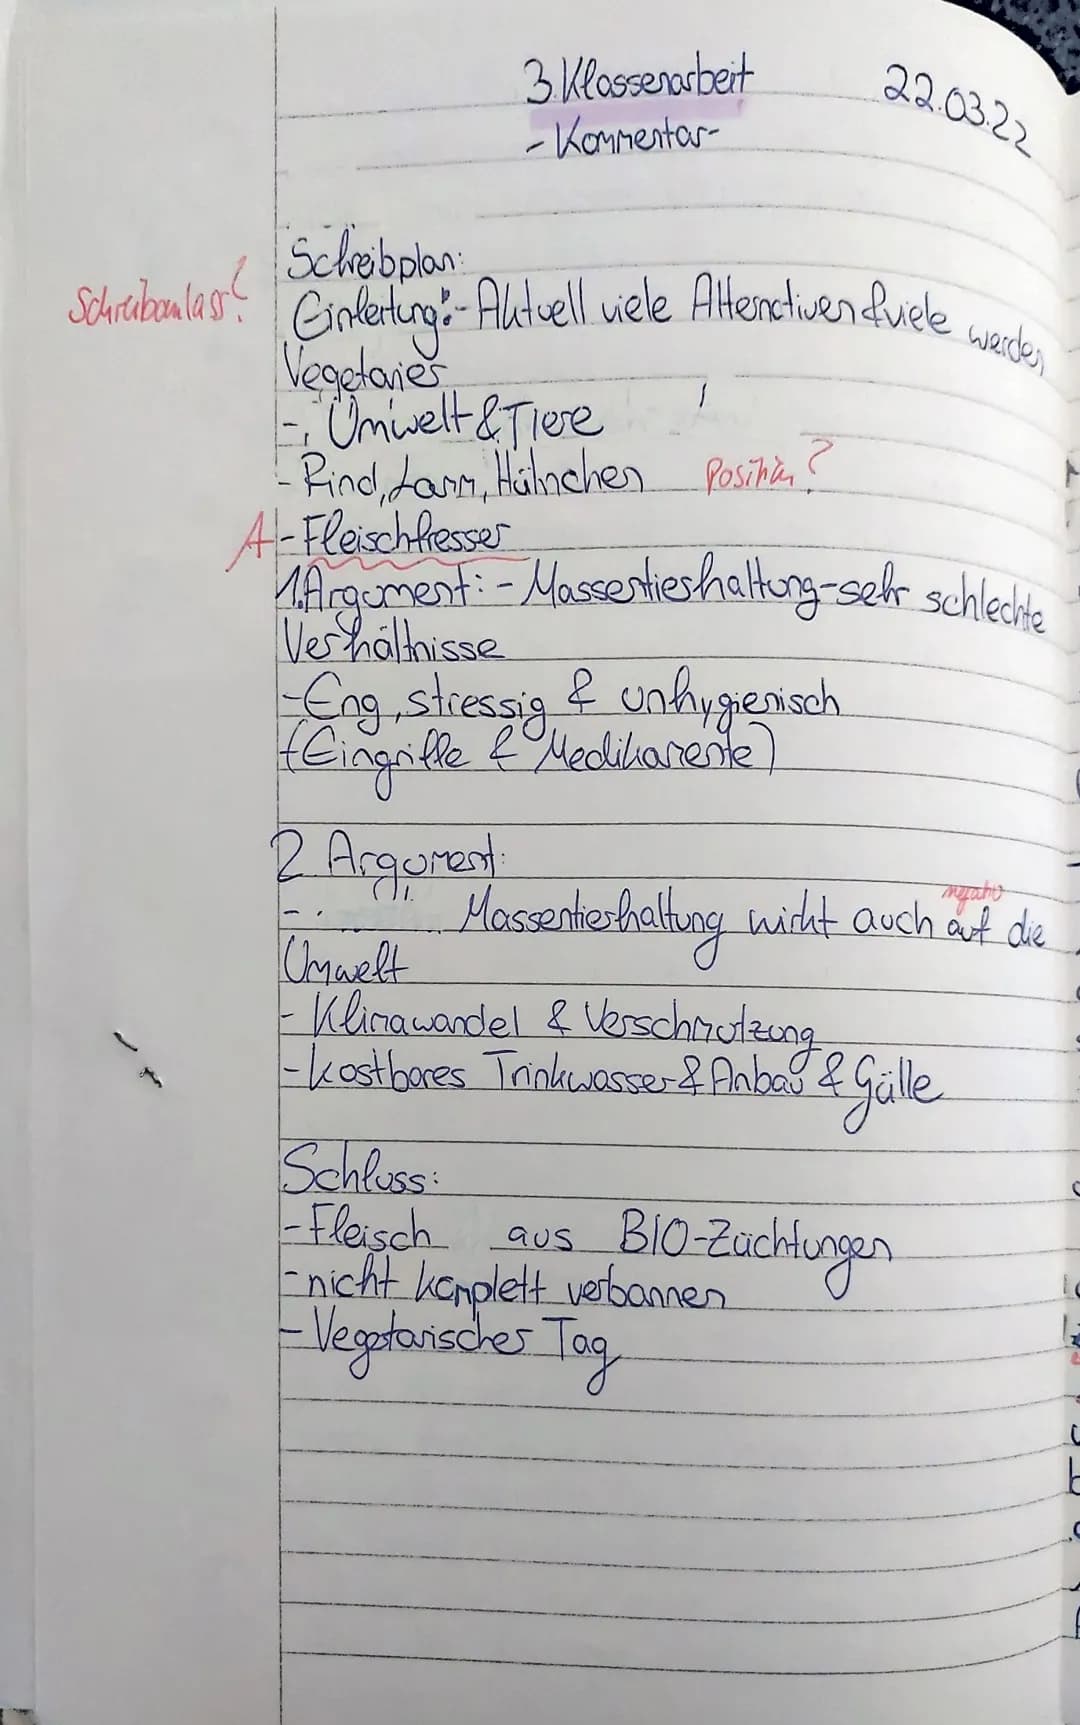 3. Klassenarbeit 22.03.22
- Kommentar-
Schreibplan:
Schreibanlass?
Einleitung: - Aktuell viele Alternativen & viele werden
Vegetarier
- Umwelt & Tiere
- Rind, Lamm, Hähnchen Position?
A - Fleischfresser
1. Argument: - Massentierhaltung - sehr schlechte
Verhältnisse
- Eng, stressig & unhygienisch
(Eingriffe & Medikamente)
2 Argument:
negativ
- Massentierhaltung wirkt auch auf die
Umwelt
- Klimawandel & Verschmutzung
- kostbares Trinkwasser & Anbau & Gülle
Schluss:
- Fleisch aus BIO-Züchtungen
- nicht komplett verbannen
- Vegetarischer Tag